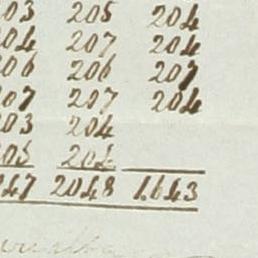 03 205 204
04 207 204
06 206 207
07 207 204
03 204
05 204
47 2048 1.643